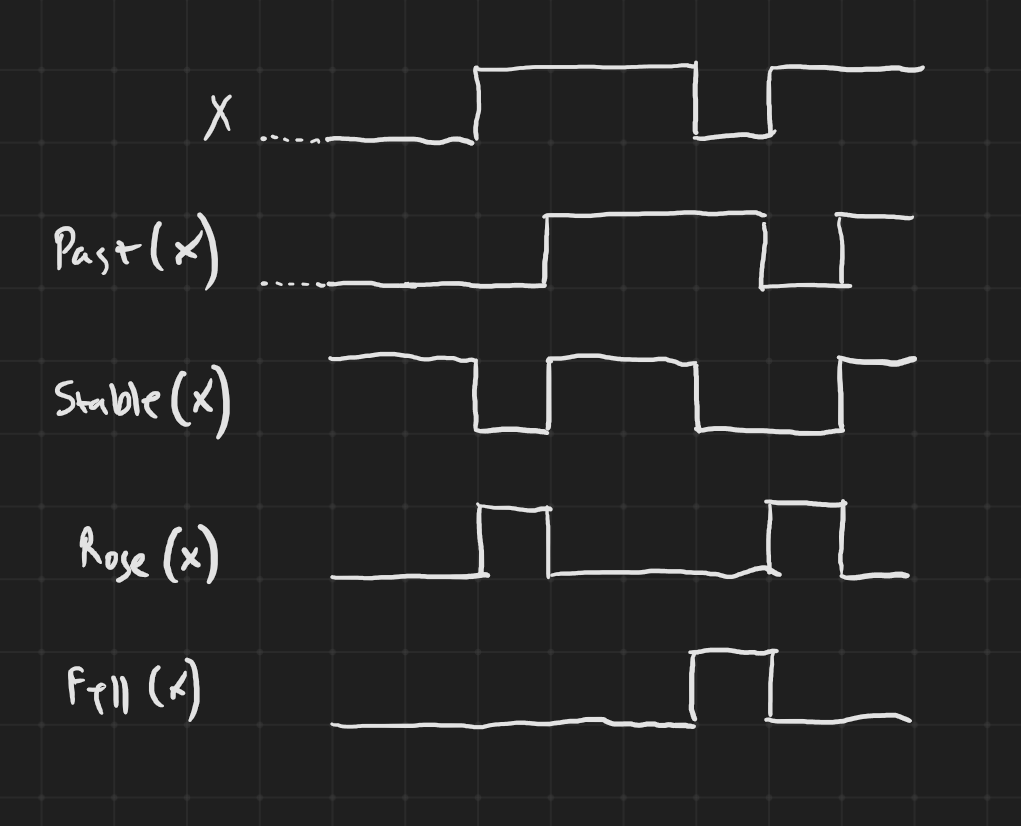 X
Past(x)
Stable(x)
Rose(x)
Fell(x)